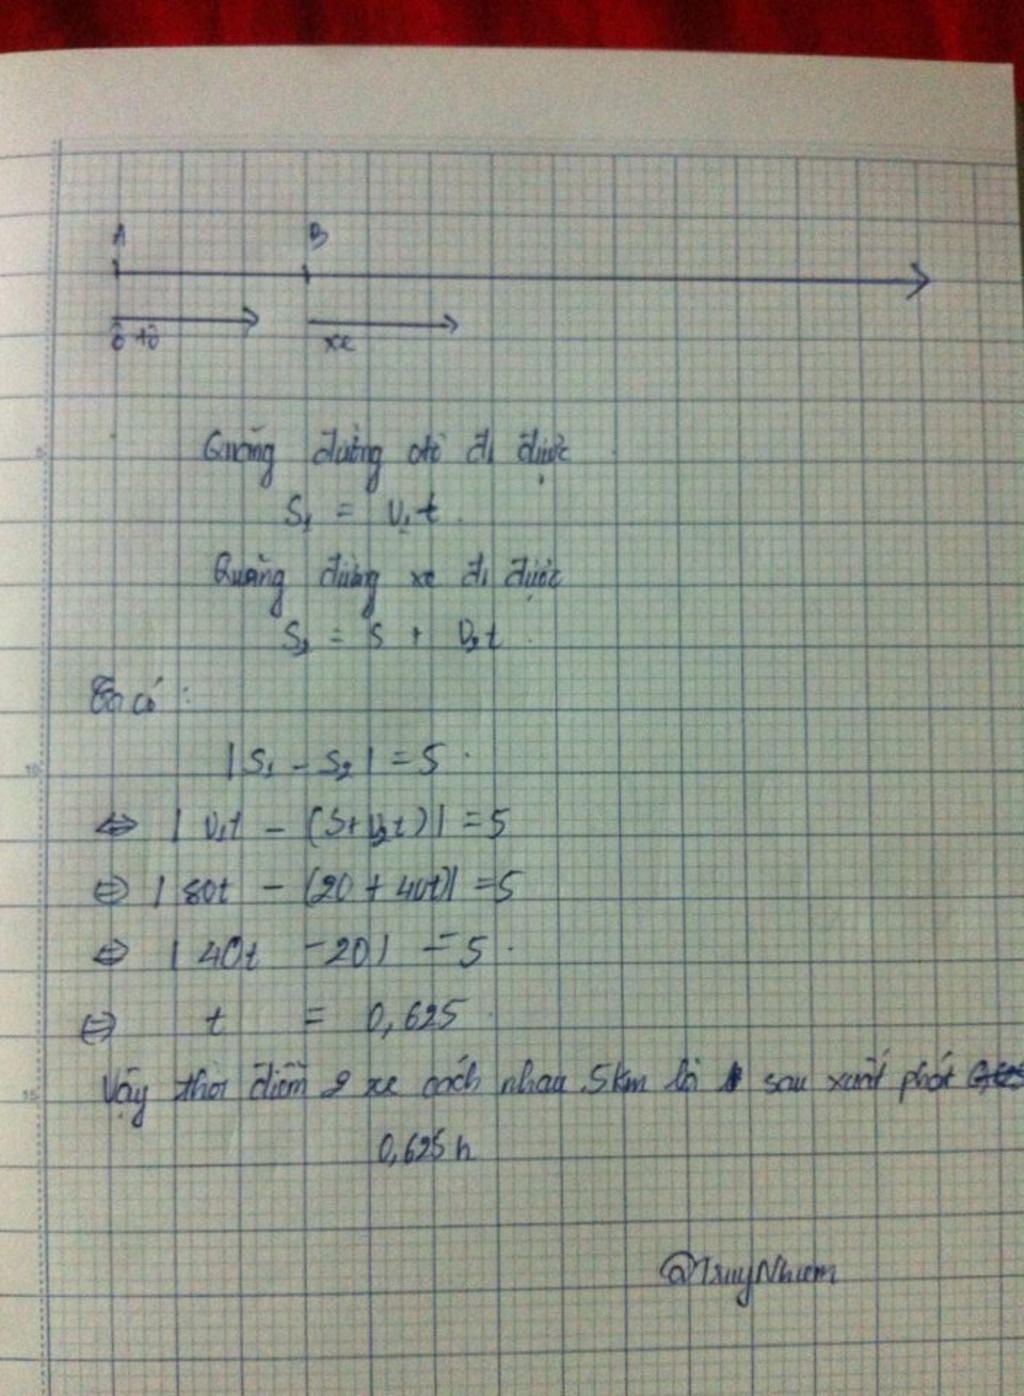 A B
ô tô xe
Quãng đường ôtô đi được
S₁ = v₁t
Quãng đường xe đi được
S₂ = S + v₂t
Ta có :
|S₁ - S₂| = 5
⇔ | v₁t - (S + v₂t)| = 5
⇔ | 80t - (20 + 40t)| = 5
⇔ | 40t - 20| = 5
⇔ t = 0,625
Vậy thời điểm 2 xe cách nhau 5km là sau xuất phát
0,625 h
@TruyNhiem